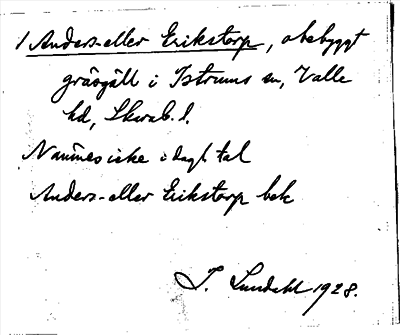 1 Anders- eller Erikstorp, obebyggt
gräsgäll i Istrums sn, Valle
hd, Skarab. l.
Namnes icke i dagl. tal
Anders- eller Erikstorp bek
I. Lundahl 1928.